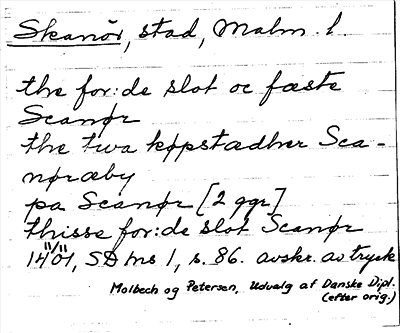 Skanör, stad, Malm. l.
the for:de slot oc fæste
Scanør
the twa køpstædher Sca-
nøræby
pa Scanør [2 ggr]
thisse for:de slot Scanør
14 11/11 01, SD ns 1, s. 86. avskr. av tryck
Molbech og Petersen, Udvalg af Danske Dipl.
(efter orig.)